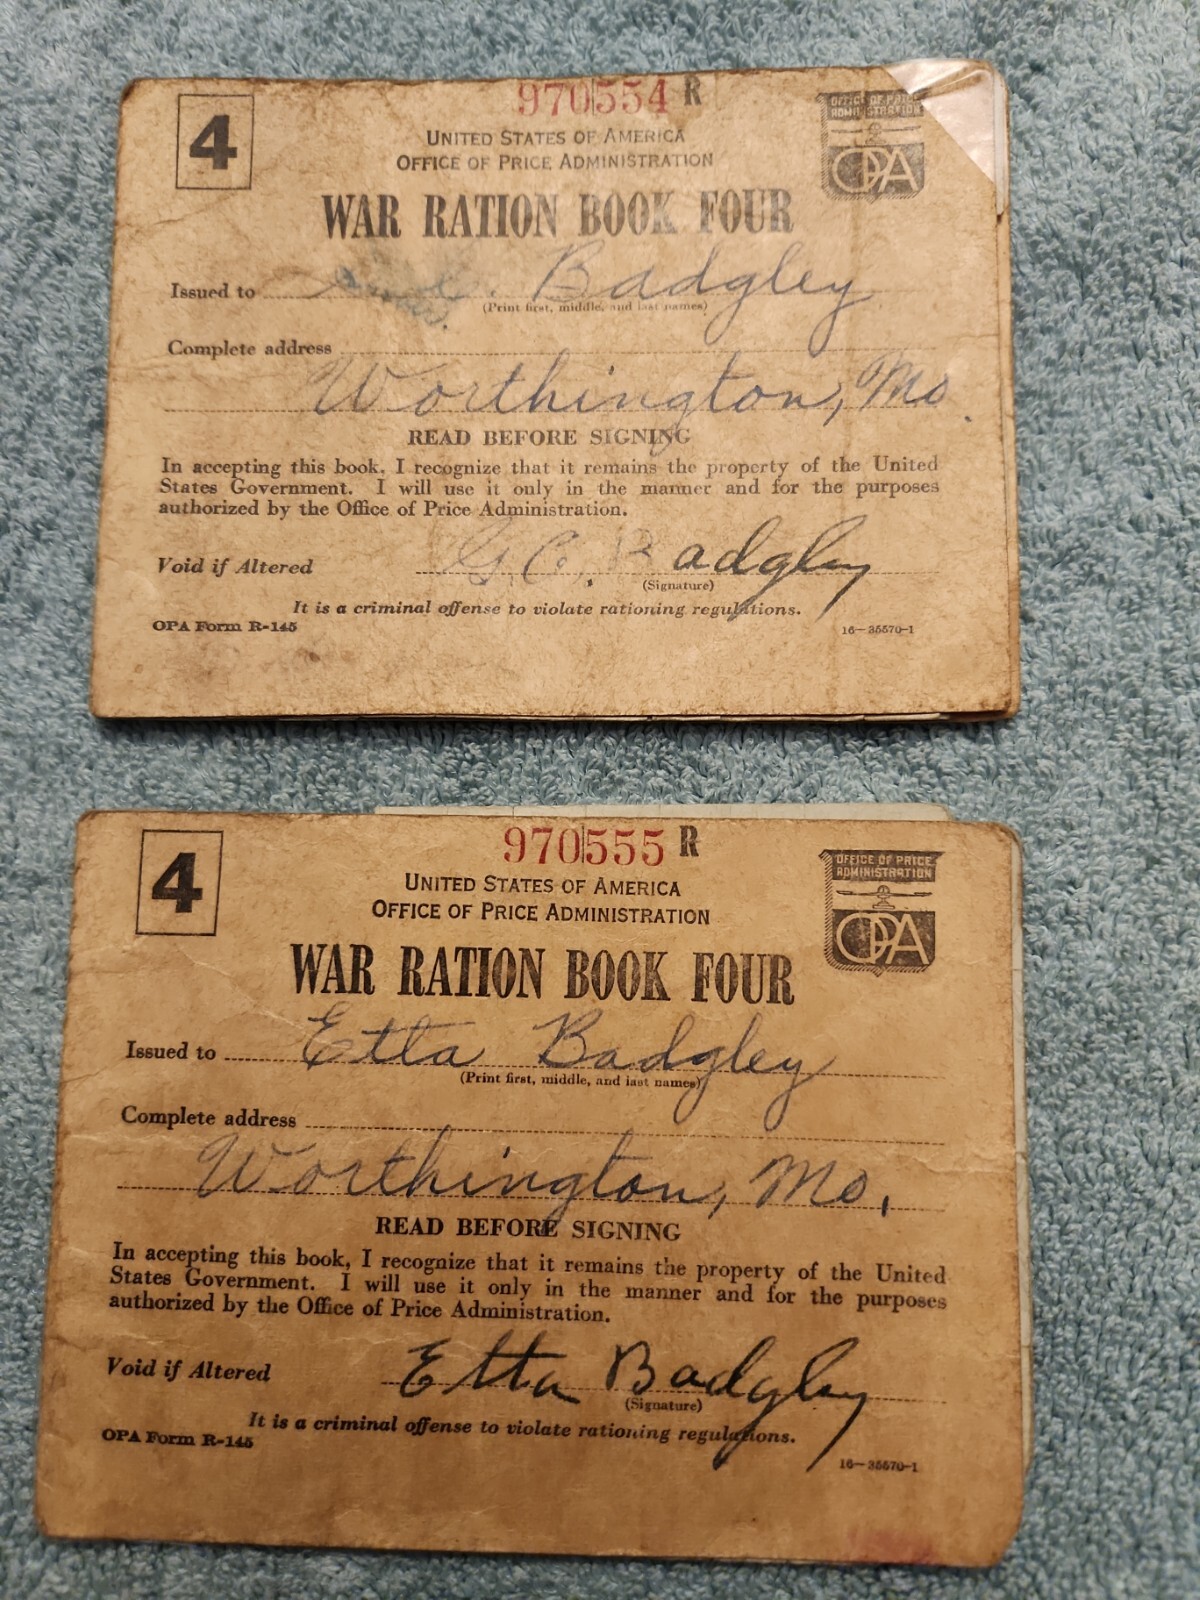 4
970554 R
UNITED STATES OF AMERICA
OFFICE OF PRICE ADMINISTRATION
OFFICE OF PRICE
ADMINISTRATION
OPA
WAR RATION BOOK FOUR
Issued to Badgley
(Print first, middle, and last names)
Complete address
Worthington, Mo.
READ BEFORE SIGNING
In accepting this book, I recognize that it remains the property of the United
States Government. I will use it only in the manner and for the purposes
authorized by the Office of Price Administration.
Void if Altered G. C. Badgley
(Signature)
It is a criminal offense to violate rationing regulations.
OPA Form R-145 16—35570-1
4
970555 R
UNITED STATES OF AMERICA
OFFICE OF PRICE ADMINISTRATION
OFFICE OF PRICE
ADMINISTRATION
OPA
WAR RATION BOOK FOUR
Issued to Etta Badgley
(Print first, middle, and last names)
Complete address
Worthington, Mo.
READ BEFORE SIGNING
In accepting this book, I recognize that it remains the property of the United
States Government. I will use it only in the manner and for the purposes
authorized by the Office of Price Administration.
Void if Altered Etta Badgley
(Signature)
It is a criminal offense to violate rationing regulations.
OPA Form R-145 16—35570-1